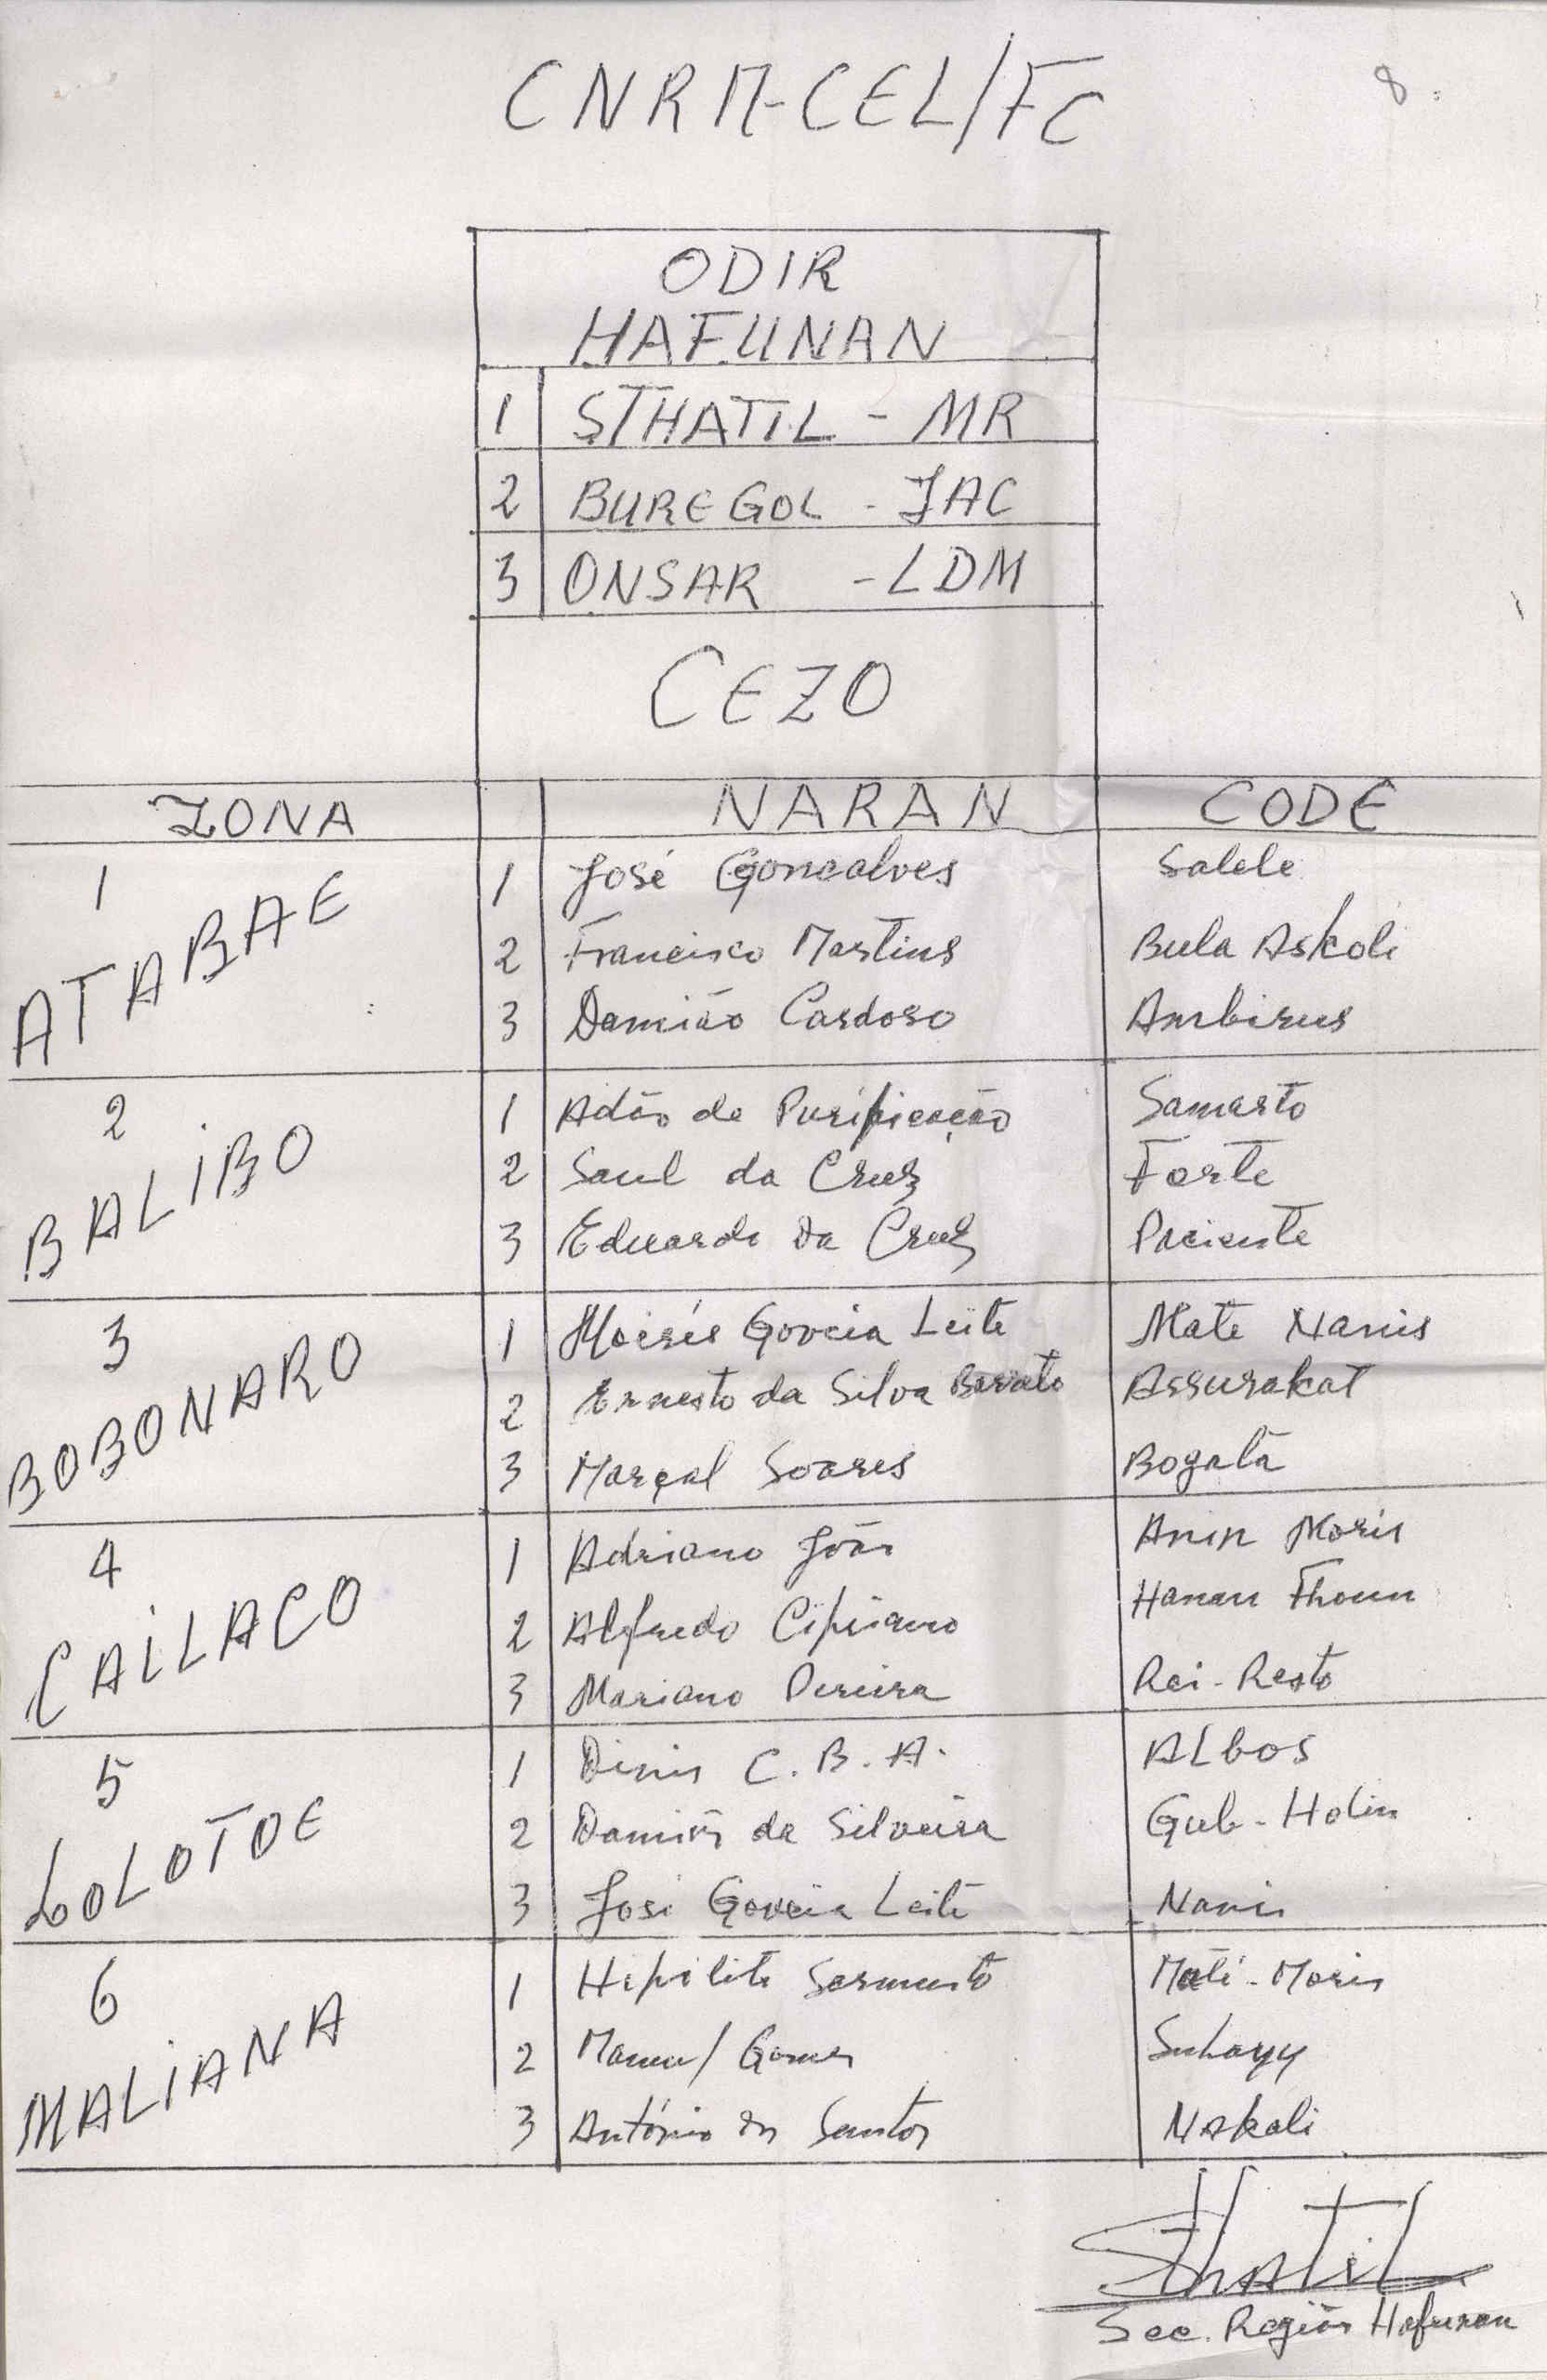 CNRM-CEL/FC
8
ODIR
HAFUNAN
1 STHATIL - MR
2 BUREGOL - JAC
3 ONSAR - LDM
CEZO
ZONA NARAN CODE
1 ATABAE
1 José Goncalves Salele
2 Francisco Martins Bula Askoli
3 Damião Cardoso Ambirus
2 BALIBO
1 Adão da Purificação Samarto
2 Saul da Cruz Forte
3 Eduardo Da Cruz Paciente
3 BOBONARO
1 Moisés Goveia Leite Mate Nanis
2 Ernesto da Silva Barato Assurakat
3 Marçal Soares Bogatá
4 CAILACO
1 Adriano João Anin Moris
2 Alfredo Cipriano Hanau
3 Mariano Pereira Rai-Resto
5 LOLOTOE
1 Dinis C.B.A. ALbos
2 Damião da Silveira Gub-Holin
3 José Goveia Leite Nanis
6 MALIANA
1 Hipólito Sarmento Mati-Moris
2 Manuel Gomes
3 António dos Santos Nakali
SthatiL
Sec. Região Hafunan